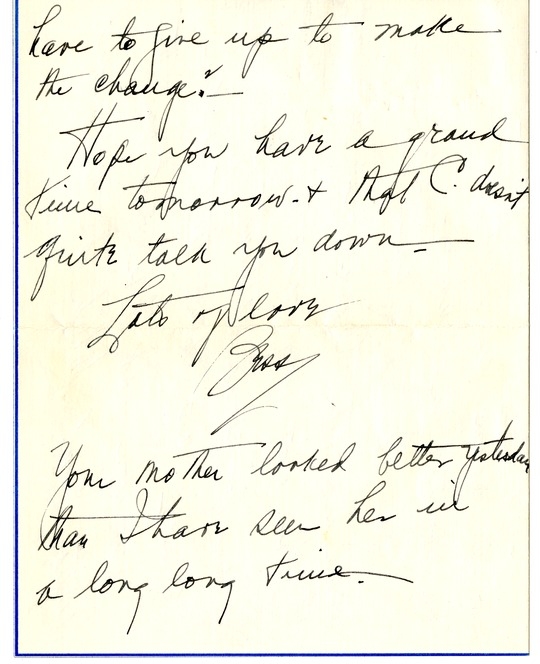 have to give up to make
the change?—
Hope you have a grand
time tomorrow - & that C. doesn't
quite talk you down—
Lots of love
Bess
Your mother looked better yesterday
than I have seen her in
a long long time.—